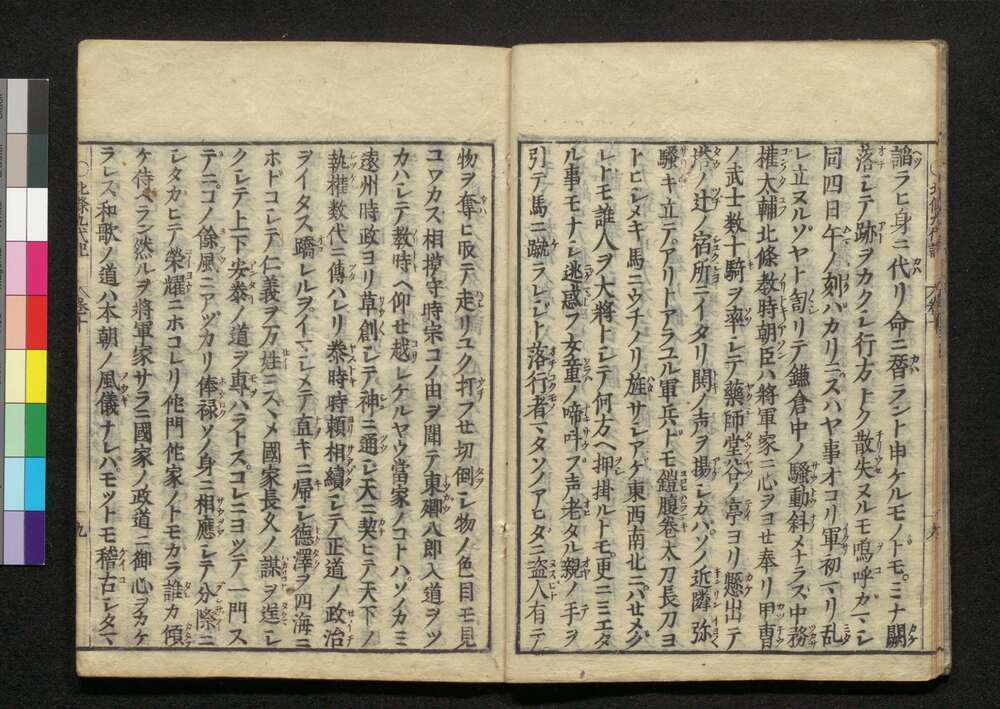 諂ラヒ身ニ代リ命ニ替ラント申ケルモノドモヿミナ闕
落シテ跡ヲカクシ行方トク散失ヌルモ嗚呼ガマシ
同四日午ノ刻バカリニスハヤ事オコリ軍初マリ乱
レ立ヌルゾヤト訇リテ鎌倉中ノ騒動斜メナラズ中務
権太輔北條教時朝臣ハ將軍家ニ心ヲヨせ奉リ甲冑
ノ武士数十騎ヲ率シテ藥師堂谷ノ亭ヨリ懸出テ
塔ノ辻ノ宿所ニイタリ関ノ声ヲ揚シカバソノ近隣弥
騒キ立テアリトアラユル軍兵ドモ鎧腹巻太刀長刀ヨ
トヒシメキ馬ニウチノリ旌サシアゲ東西南北ニハせメグ
レトモ誰人ヲ大將トシテ何方ヘ押掛ルトモ更ニミエタ
ル事モナシ逃惑フ女童ノ啼呌フ声老タル親ノ手ヲ
引テ馬ニ蹴ラレジト落行者マタソノアヒダニ盗人有テ
物ヲ奪ヒ取テ走リユク打フせ切倒シ物ノ色目モ見
ユワカス相摸守時宗コノ由ヲ聞テ東郷八郎入道ヲツ
カハシテ教時ヘ仰せ越レケルヤウ當家ノコトハソノカミ
遠州時政ヨリ草創シテ神ニ通シ天ニ契ヒテ天下ノ
執権数代ニ傳ハレリ泰時時頼相續シテ正道ノ政治
ヲイタス驕レルヲイマシメテ直キニ帰シ德澤ヲ四海ニ
ホドコシテ仁義ヲ万姓ニスヽメ國家長久ノ謀ヲ遂シ
クシテ上下安泰ノ道ヲ専ハラトスコレニヨツテ一門ス
テニコノ餘風ニアヅカリ俸禄ソノ身ニ相應シテ分際ニ
シタカヒテ榮耀ニホコレリ他門他家ノトモカラ誰カ傾
ケ侍ヘラン然ルヲ將軍家サラニ國家ノ政道ニ御心ヲカケ
ラレス和歌ノ道ハ本朝ノ風儀ナレバモツトモ稽古シタマ
北條九代記
卷十
九